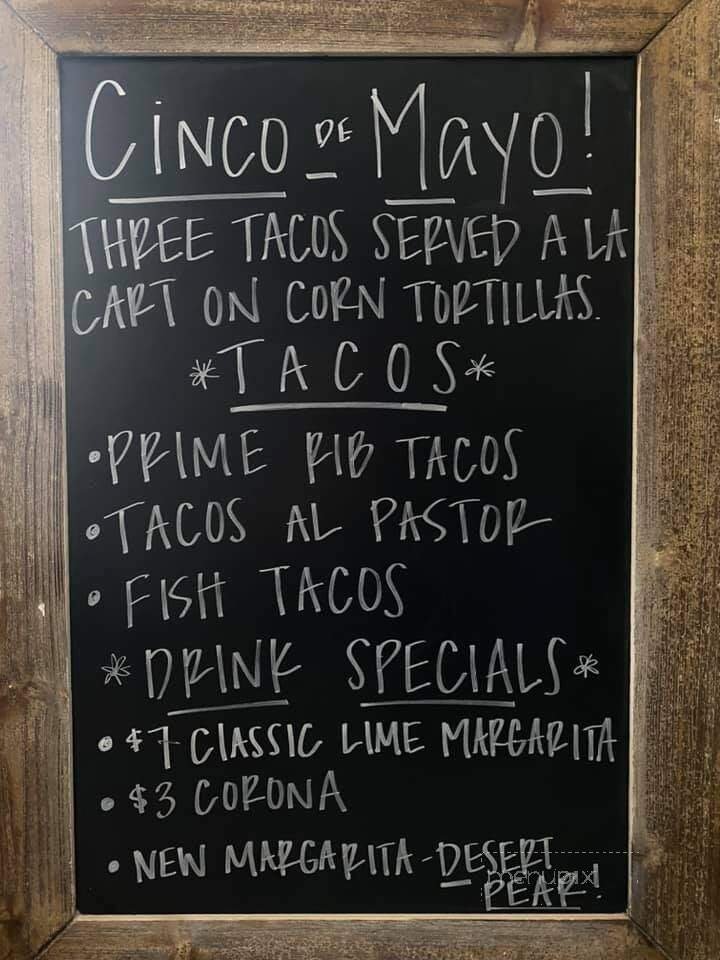 CINCO DE MAYO!
THREE TACOS SERVED A LA
CART ON CORN TORTILLAS.
*TACOS*
• PRIME RIB TACOS
• TACOS AL PASTOR
• FISH TACOS
*DRINK SPECIALS*
• $7 CLASSIC LIME MARGARITA
• $3 CORONA
• NEW MARGARITA - DESERT
menupix
PEAR!